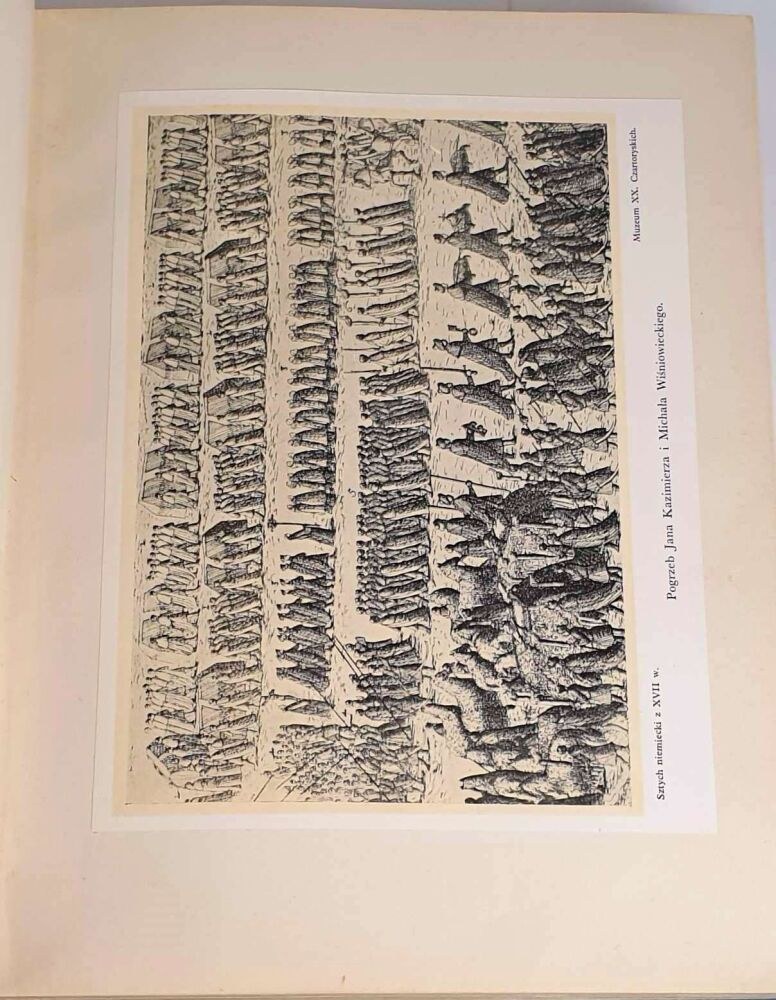 Sztych niemiecki z XVII w.
Muzeum XX. Czartoryskich.
Pogrzeb Jana Kazimierza i Michała Wiśniowieckiego.